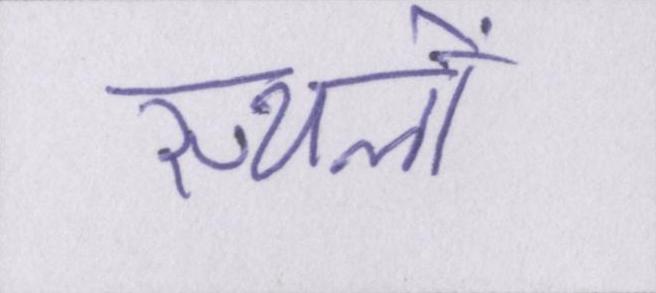 स्थलों